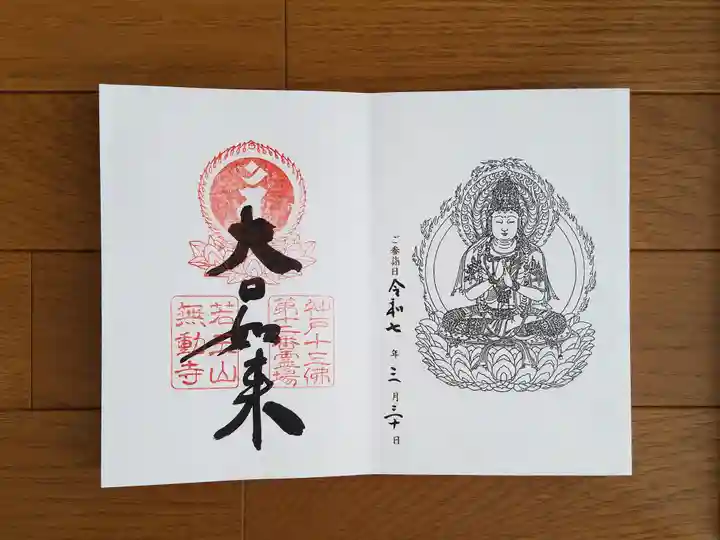 ご参詣日 令和七年 三月三十日
大日如来
神戸十三佛
第十二番霊場
若王山
無動寺